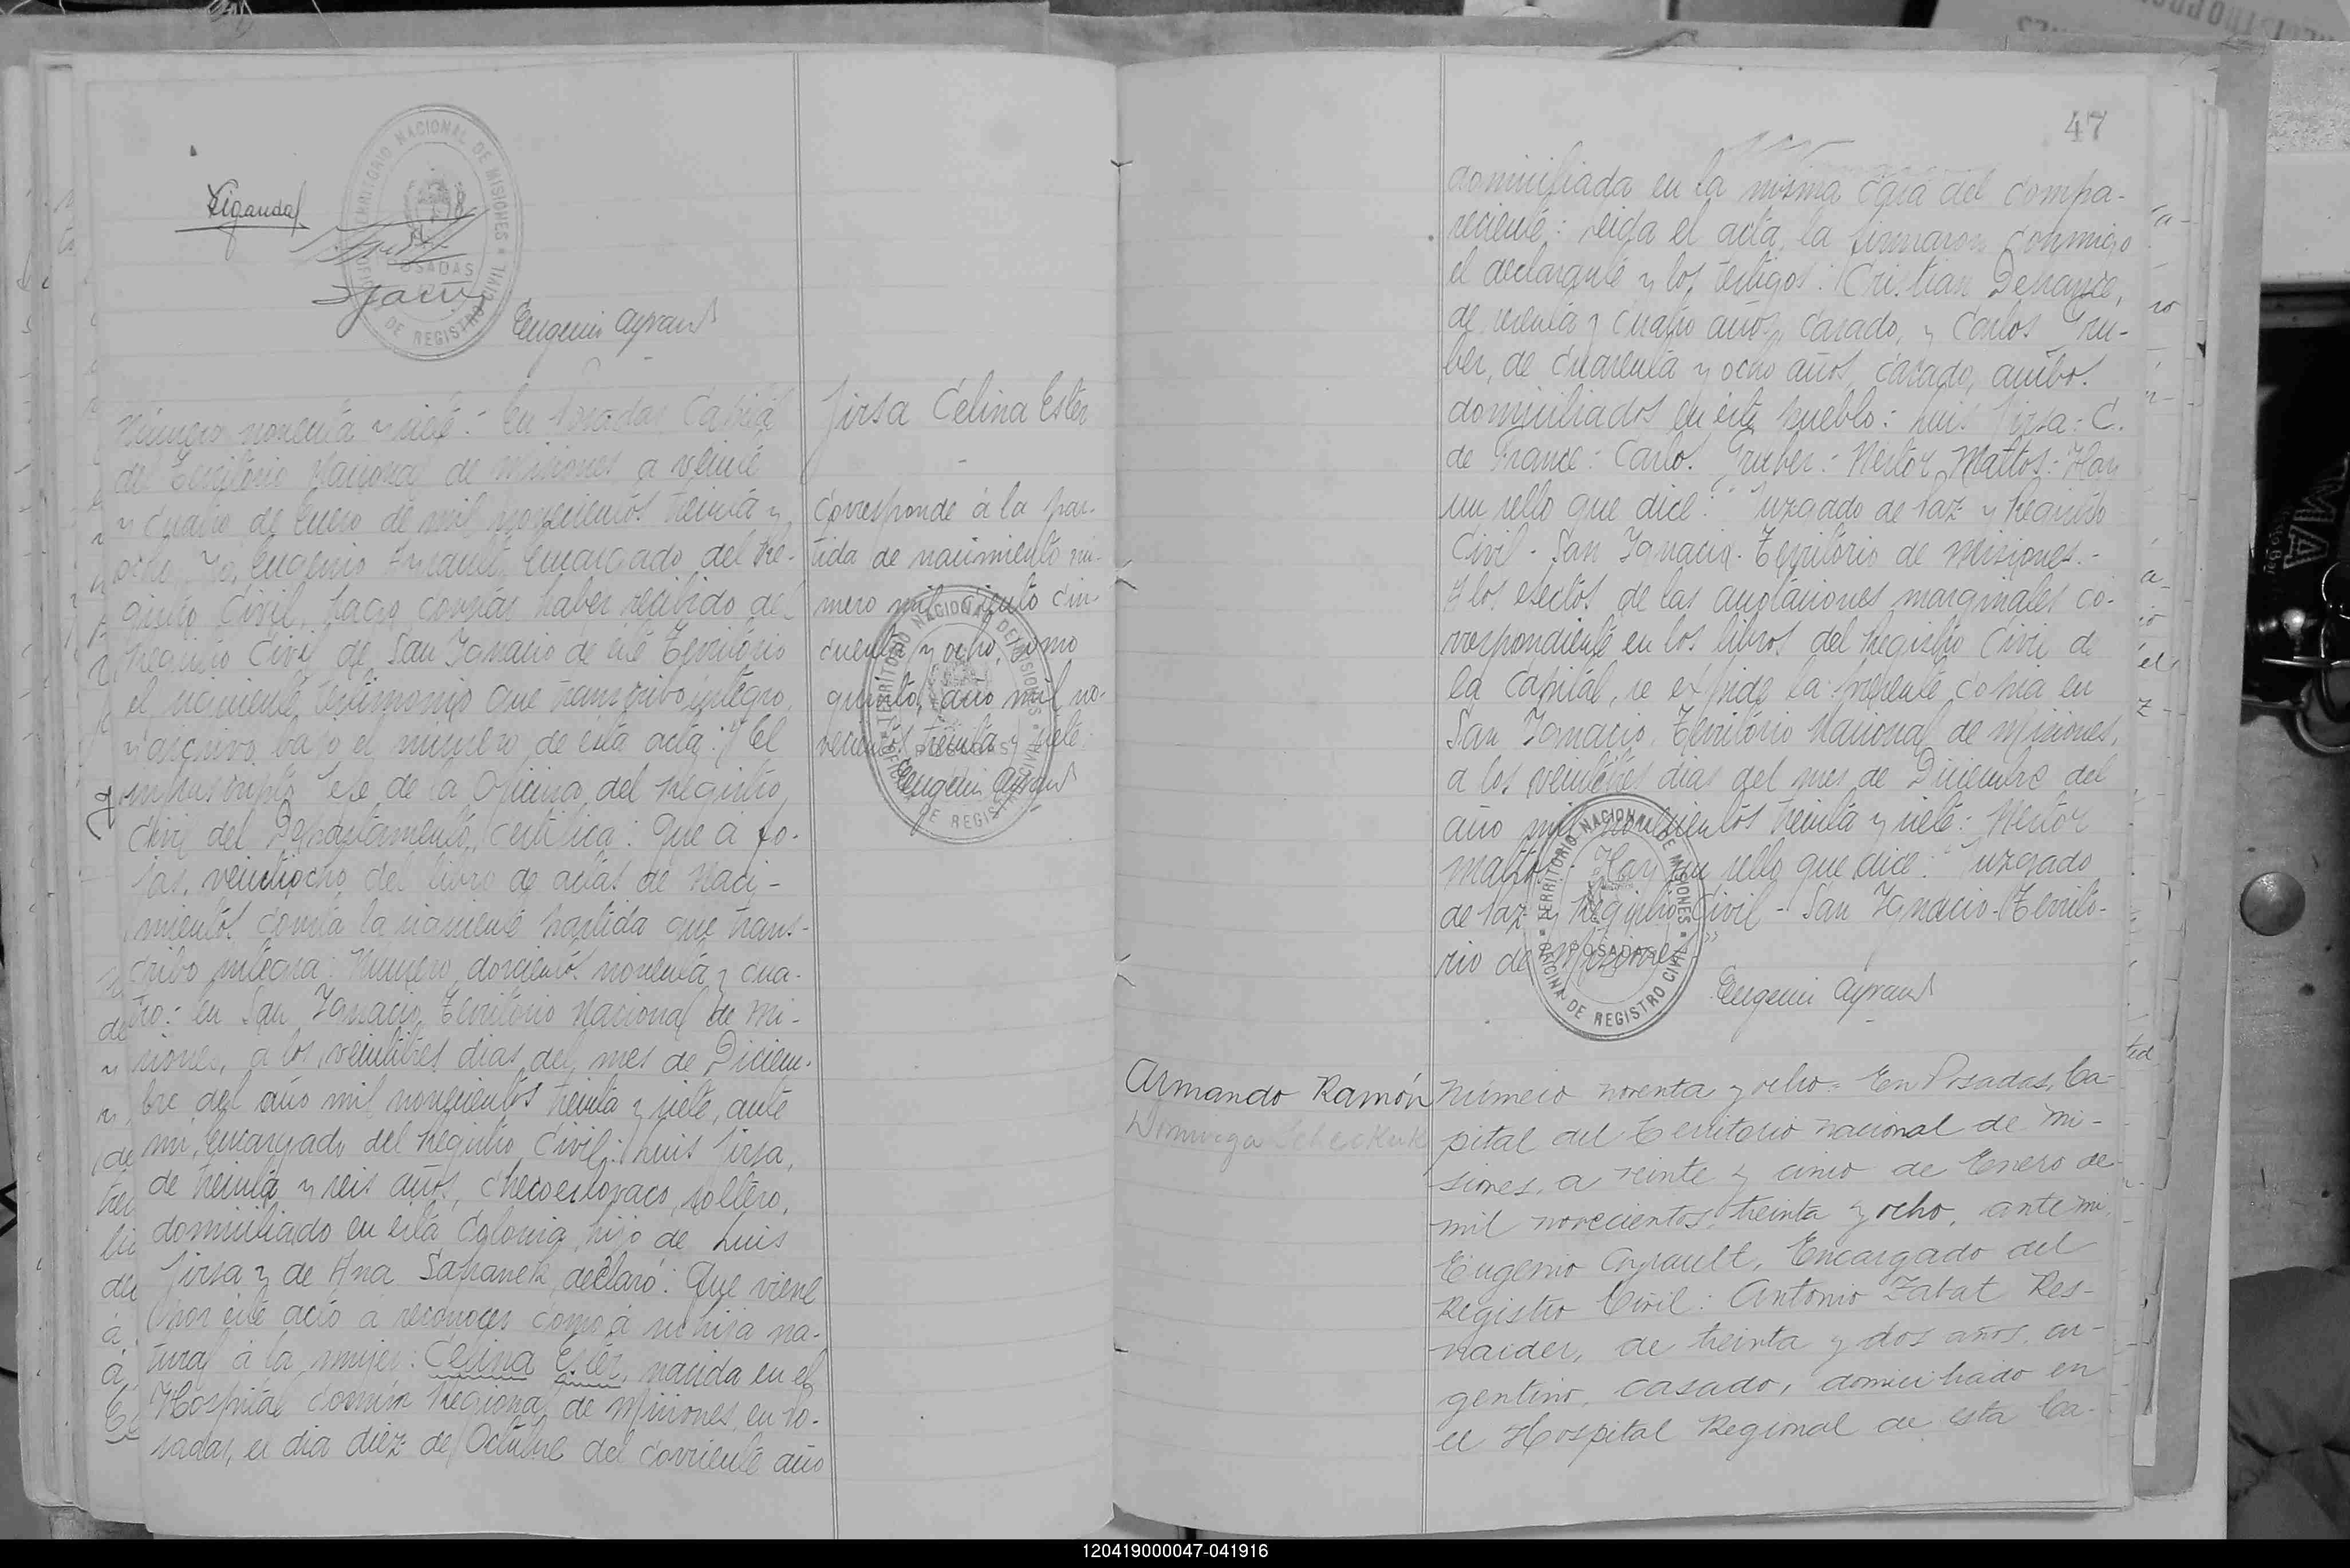 Eugenio Ayrault
Número noventa y siete: En Posadas Capital
del Territorio Nacional de Misiones a veinte
y cuatro de Enero de mil novecientos treinta y
ocho, Yo, Eugenio Ayrault, Encargado del Re-
gistro Civil, hago constar haber recibido del
Registro Civil de San Ignacio de éste Territorio
el siguiente testimonio que transcribo íntegro,
y archivo bajo el número de esta acta: "El
que suscripto Jefe de la Oficina del Registro
Civil del Departamento, certifica: Que á fo-
jas veintiocho del libro de actas de Naci-
mientos consta la siguiente partida que trans-
cribo integra: Número doscientos noventa y cua-
tro: en San Ignacio Territorio Nacional de Mi-
siones, a los veintitres dias del mes de Diciem-
bre del año mil novecientos treinta y siete, ante
mi, encargado del Registro Civil: Luis Jirsa,
de treinta y seis años, checoeslovaco, soltero,
domiciliado en esta Colonia, hijo de Luis
Jirsa y de Ana Sapanek, declaró: Que viene
por este acto á reconocer como á su hija na-
tural á la mujer: Celina Ester, nacida en el
Hospital Común Regional de Misiones, en Po-
sadas, el dia diez de Octubre del corriente año
Jirsa Celina Ester
Corresponde á la par-
tida de nacimiento nú-
mero mil ciento cin-
cuenta y ocho, tomo
quinto, año mil no-
vecientos treinta y siete:
Eugenio Ayrault
TERRITORIO NACIONAL DE MISIONES
POSADAS
OFICINA DE REGISTRO CIVIL
47
domiciliada en la misma casa del compa-
reciente: leida el acta, la firmaron conmigo
el declarante y los testigos: Cristian Defrance,
de y cuatro años, casado, y Carlos Gru-
ber, de cuarenta y ocho años, casado, ambos
domiciliados en este pueblo: Luis Jirsa: C.
de France: Carlos Gruber: Nestor Mattos: Hay
un sello que dice: "Juzgado de Paz y Registro
Civil - San Ignacio - Territorio de Misiones.-
A los efectos de las anotaciones marginales co-
rrespondiente en los libros del Registro Civil de
la Capital, se expide la presente copia en
San Ignacio, Territorio Nacional de Misiones,
a los veintitres dias del mes de Diciembre del
año mil novecientos treinta y siete: Nestor
Mattos: Hay un sello que dice: "Juzgado
de Paz y Registro Civil - San Ignacio - Territo-
rio de Misiones"
Eugenio Ayrault
TERRITORIO NACIONAL DE MISIONES
POSADAS
OFICINA DE REGISTRO CIVIL
Armando Ramón
Número noventa y ocho = En Posadas, Ca-
pital del Territorio Nacional de Mi-
siones, a veinte y cinco de Enero de
mil novecientos treinta y ocho, ante mi,
Eugenio Ayrault, Encargado del
Registro Civil: Antonio Zabat Res-
naider, de treinta y dos años, ar-
gentino, casado, domiciliado en
el Hospital Regional de esta Ca-
120419000047-041916